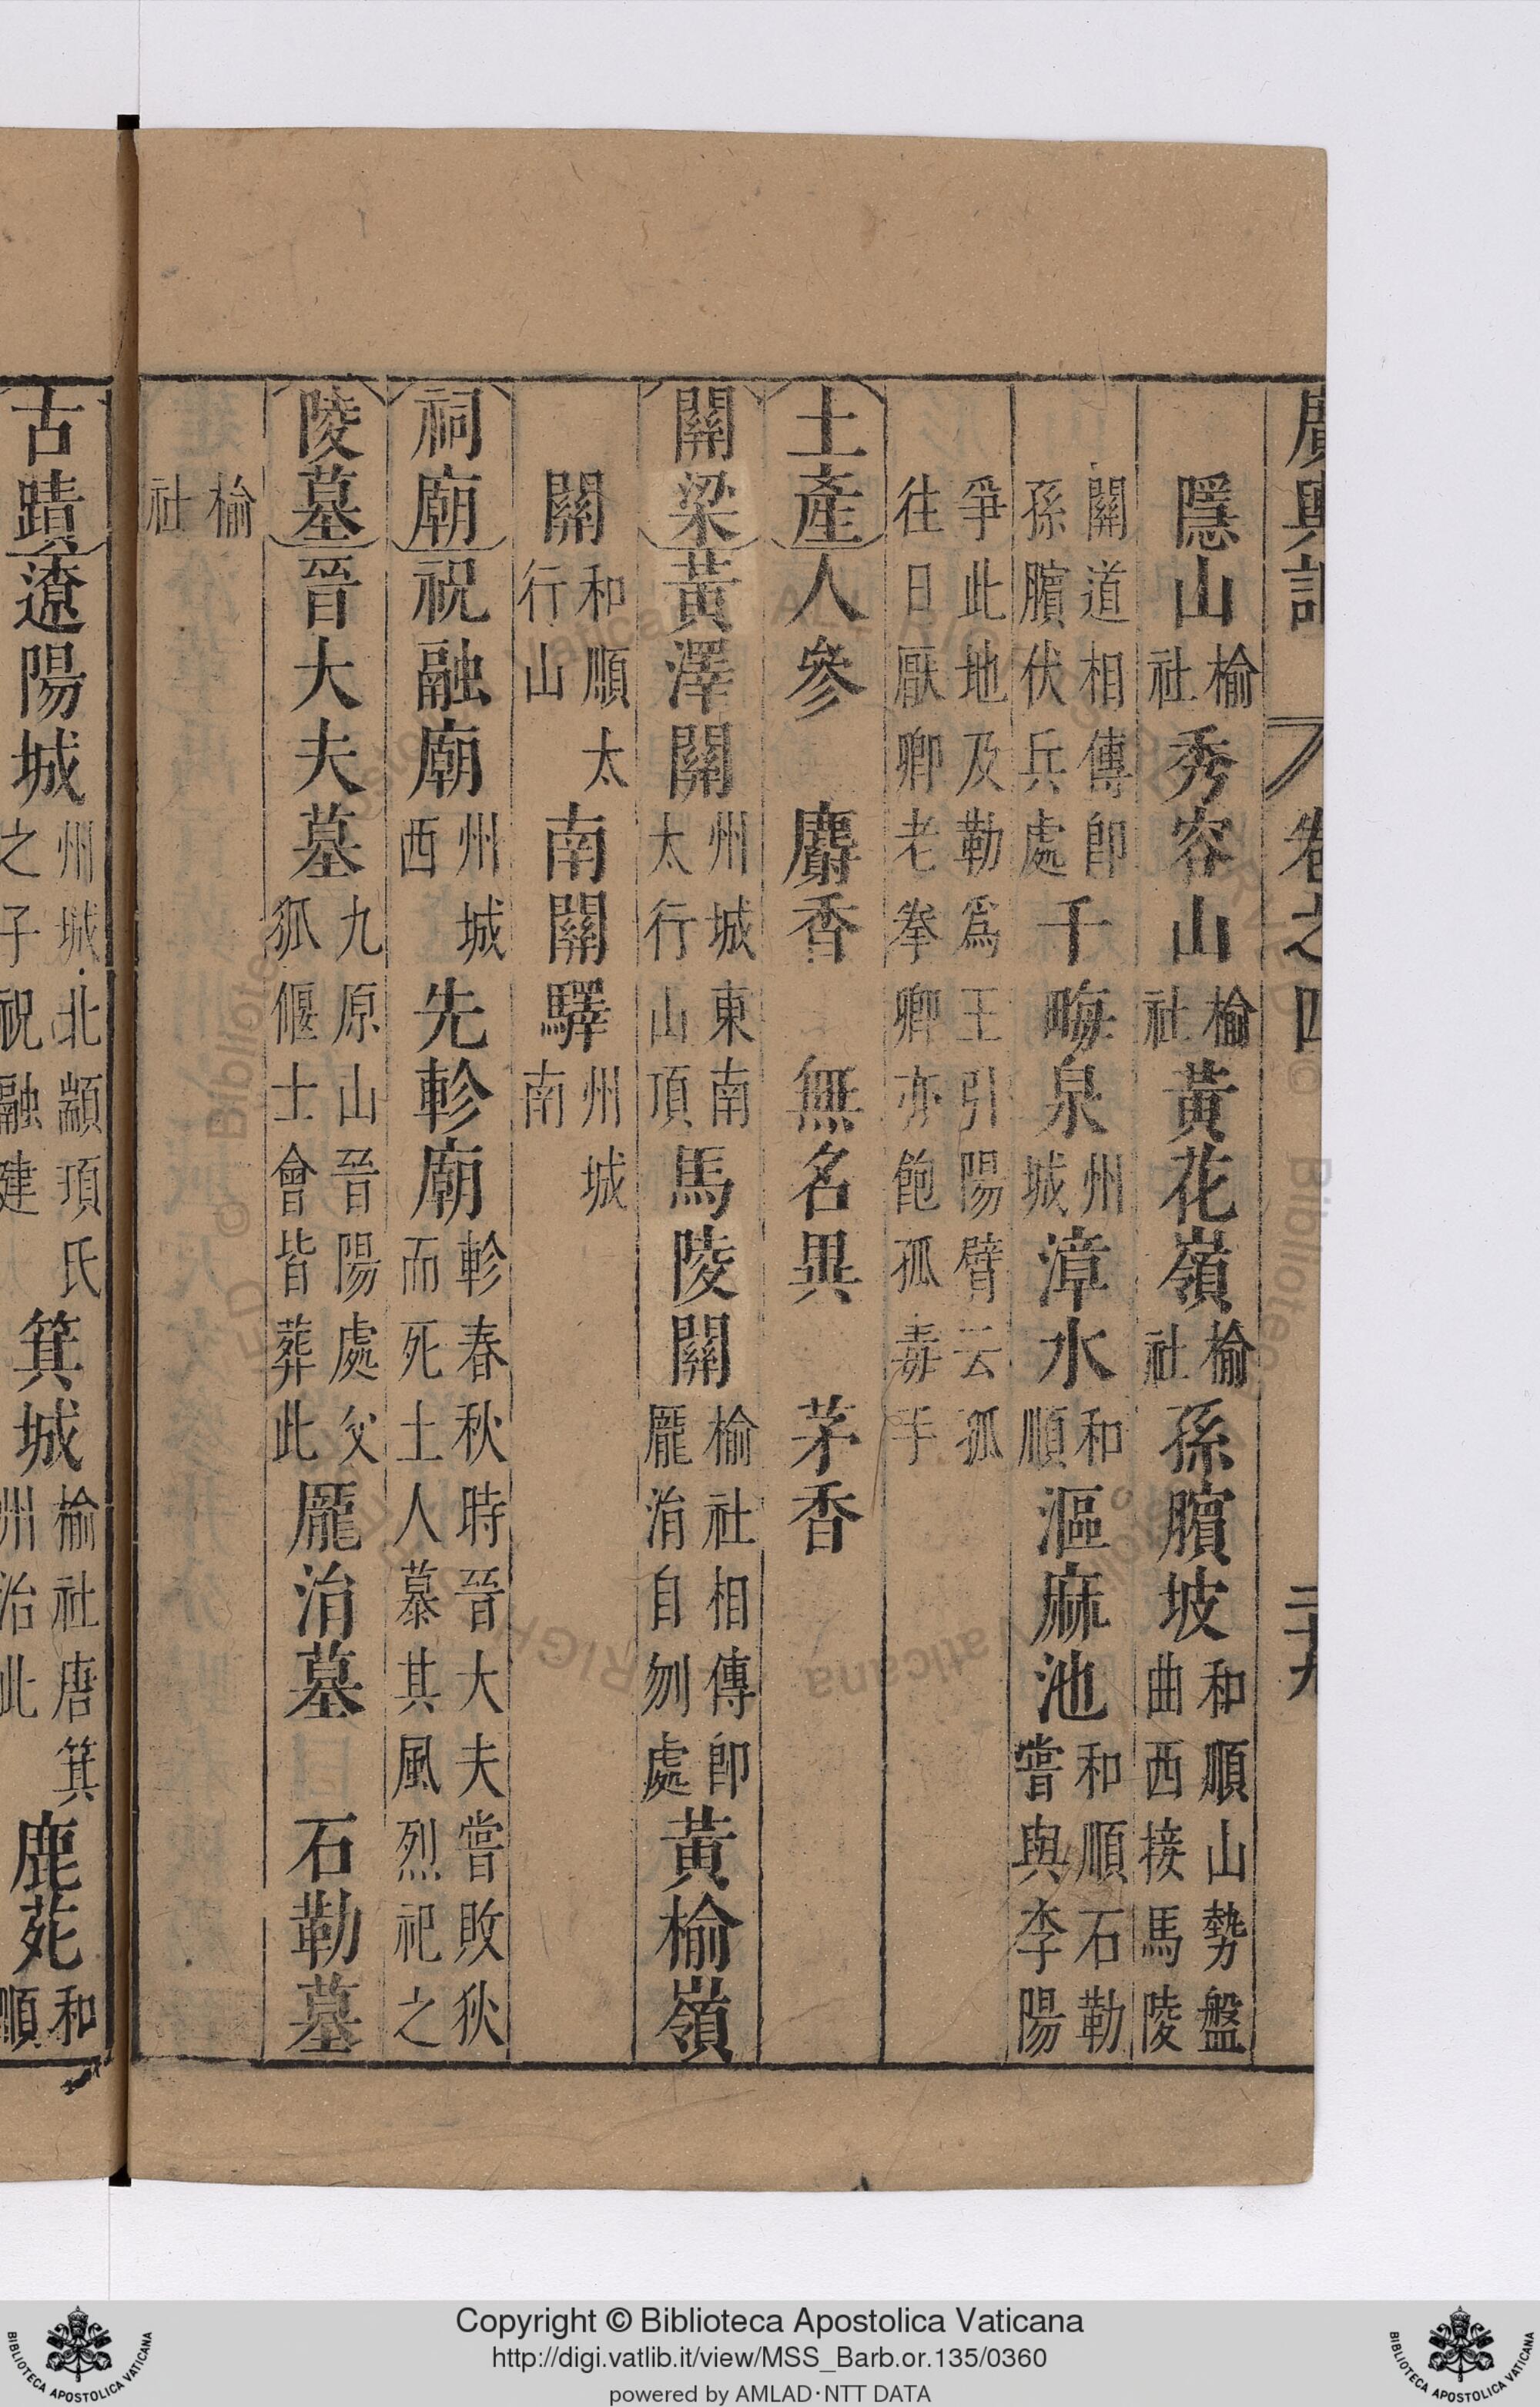 廣輿記 卷之四
隱山榆社秀容山榆社黃花嶺榆社孫臏坡和順山勢盤曲西接馬陵
關道相傳即孫臏伏兵處千畮泉州城漳水和順漚麻池和順石勒嘗與李陽
爭此地及勒為王引陽臂云孤往日厭卿老拳卿亦飽孤毒手
土產人參 麝香 無名異 茅香
關梁黃澤關州城東南太行山頂馬陵關榆社相傳即龐涓自刎處黃榆嶺
關和順太行山南關驛州城南
祠廟祝融廟州城西先軫廟軫春秋時晉大夫嘗敗狄而死土人慕其風烈祀之
陵墓晉大夫墓九原山晉陽處父狐偃士會皆葬此龐涓墓 石勒墓
榆社
古蹟遼陽城州城北顓頊氏之子祝融建箕城榆社唐箕州治此鹿苑和順
Copyright © Biblioteca Apostolica Vaticana
http://digi.vatlib.it/view/MSS_Barb.or.135/0360
powered by AMLAD·NTT DATA
BIBLIOTECA APOSTOLICA VATICANA
BIBLIOTECA APOSTOLICA VATICANA